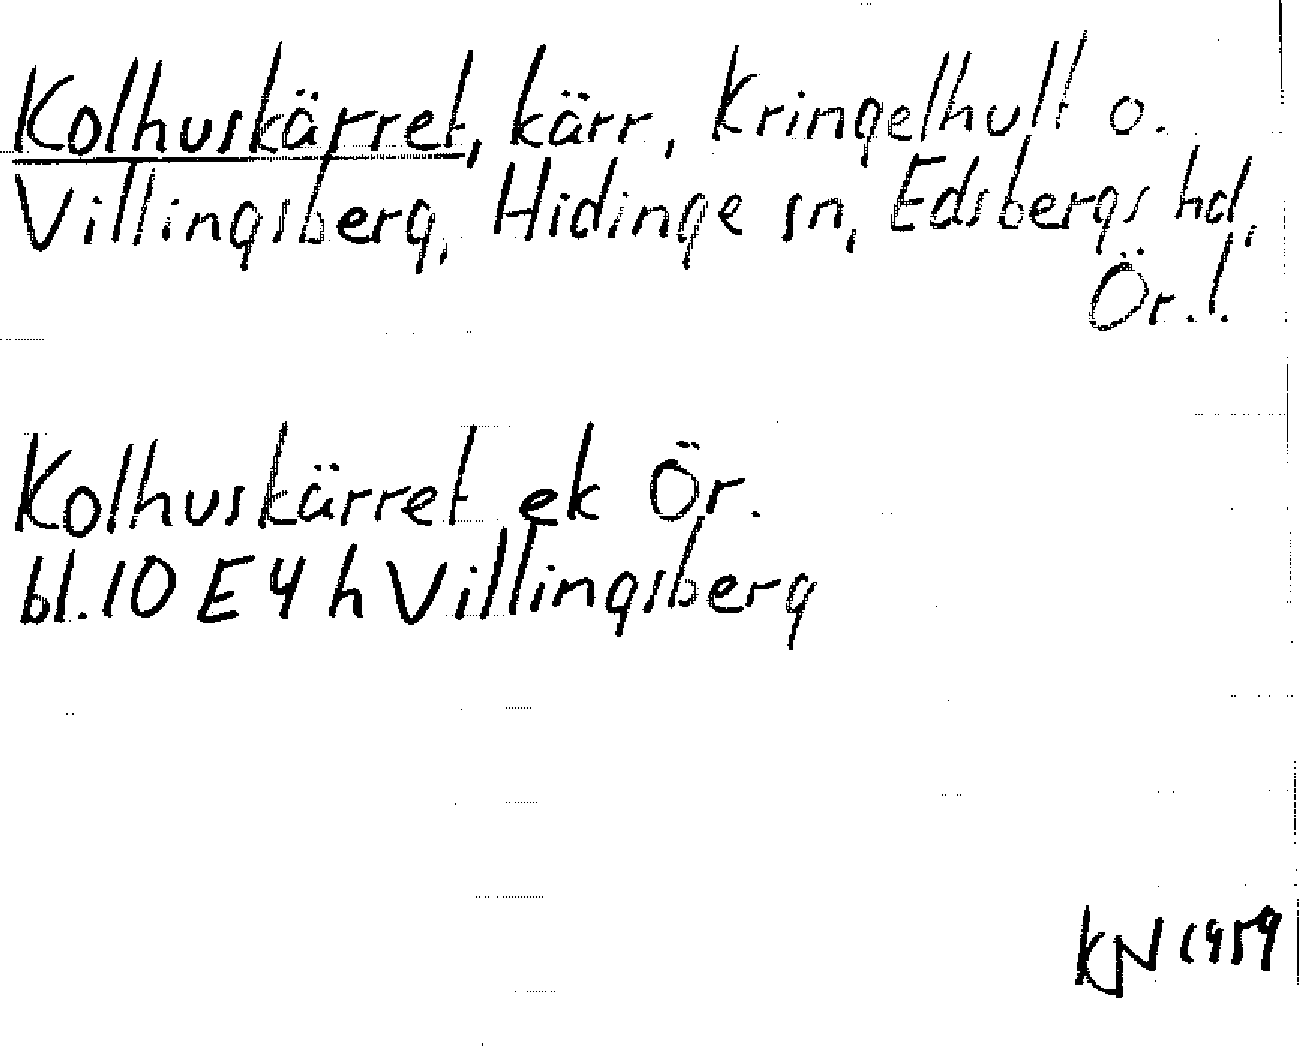 Kolhuskärret, kärr, Kringelhult o.
Villingsberg, Hidinge sn, Edsbergs hd,
Ör.l.
Kolhuskärret ek Ör.
bl. 10 E 4 h Villingsberg
KN 1959